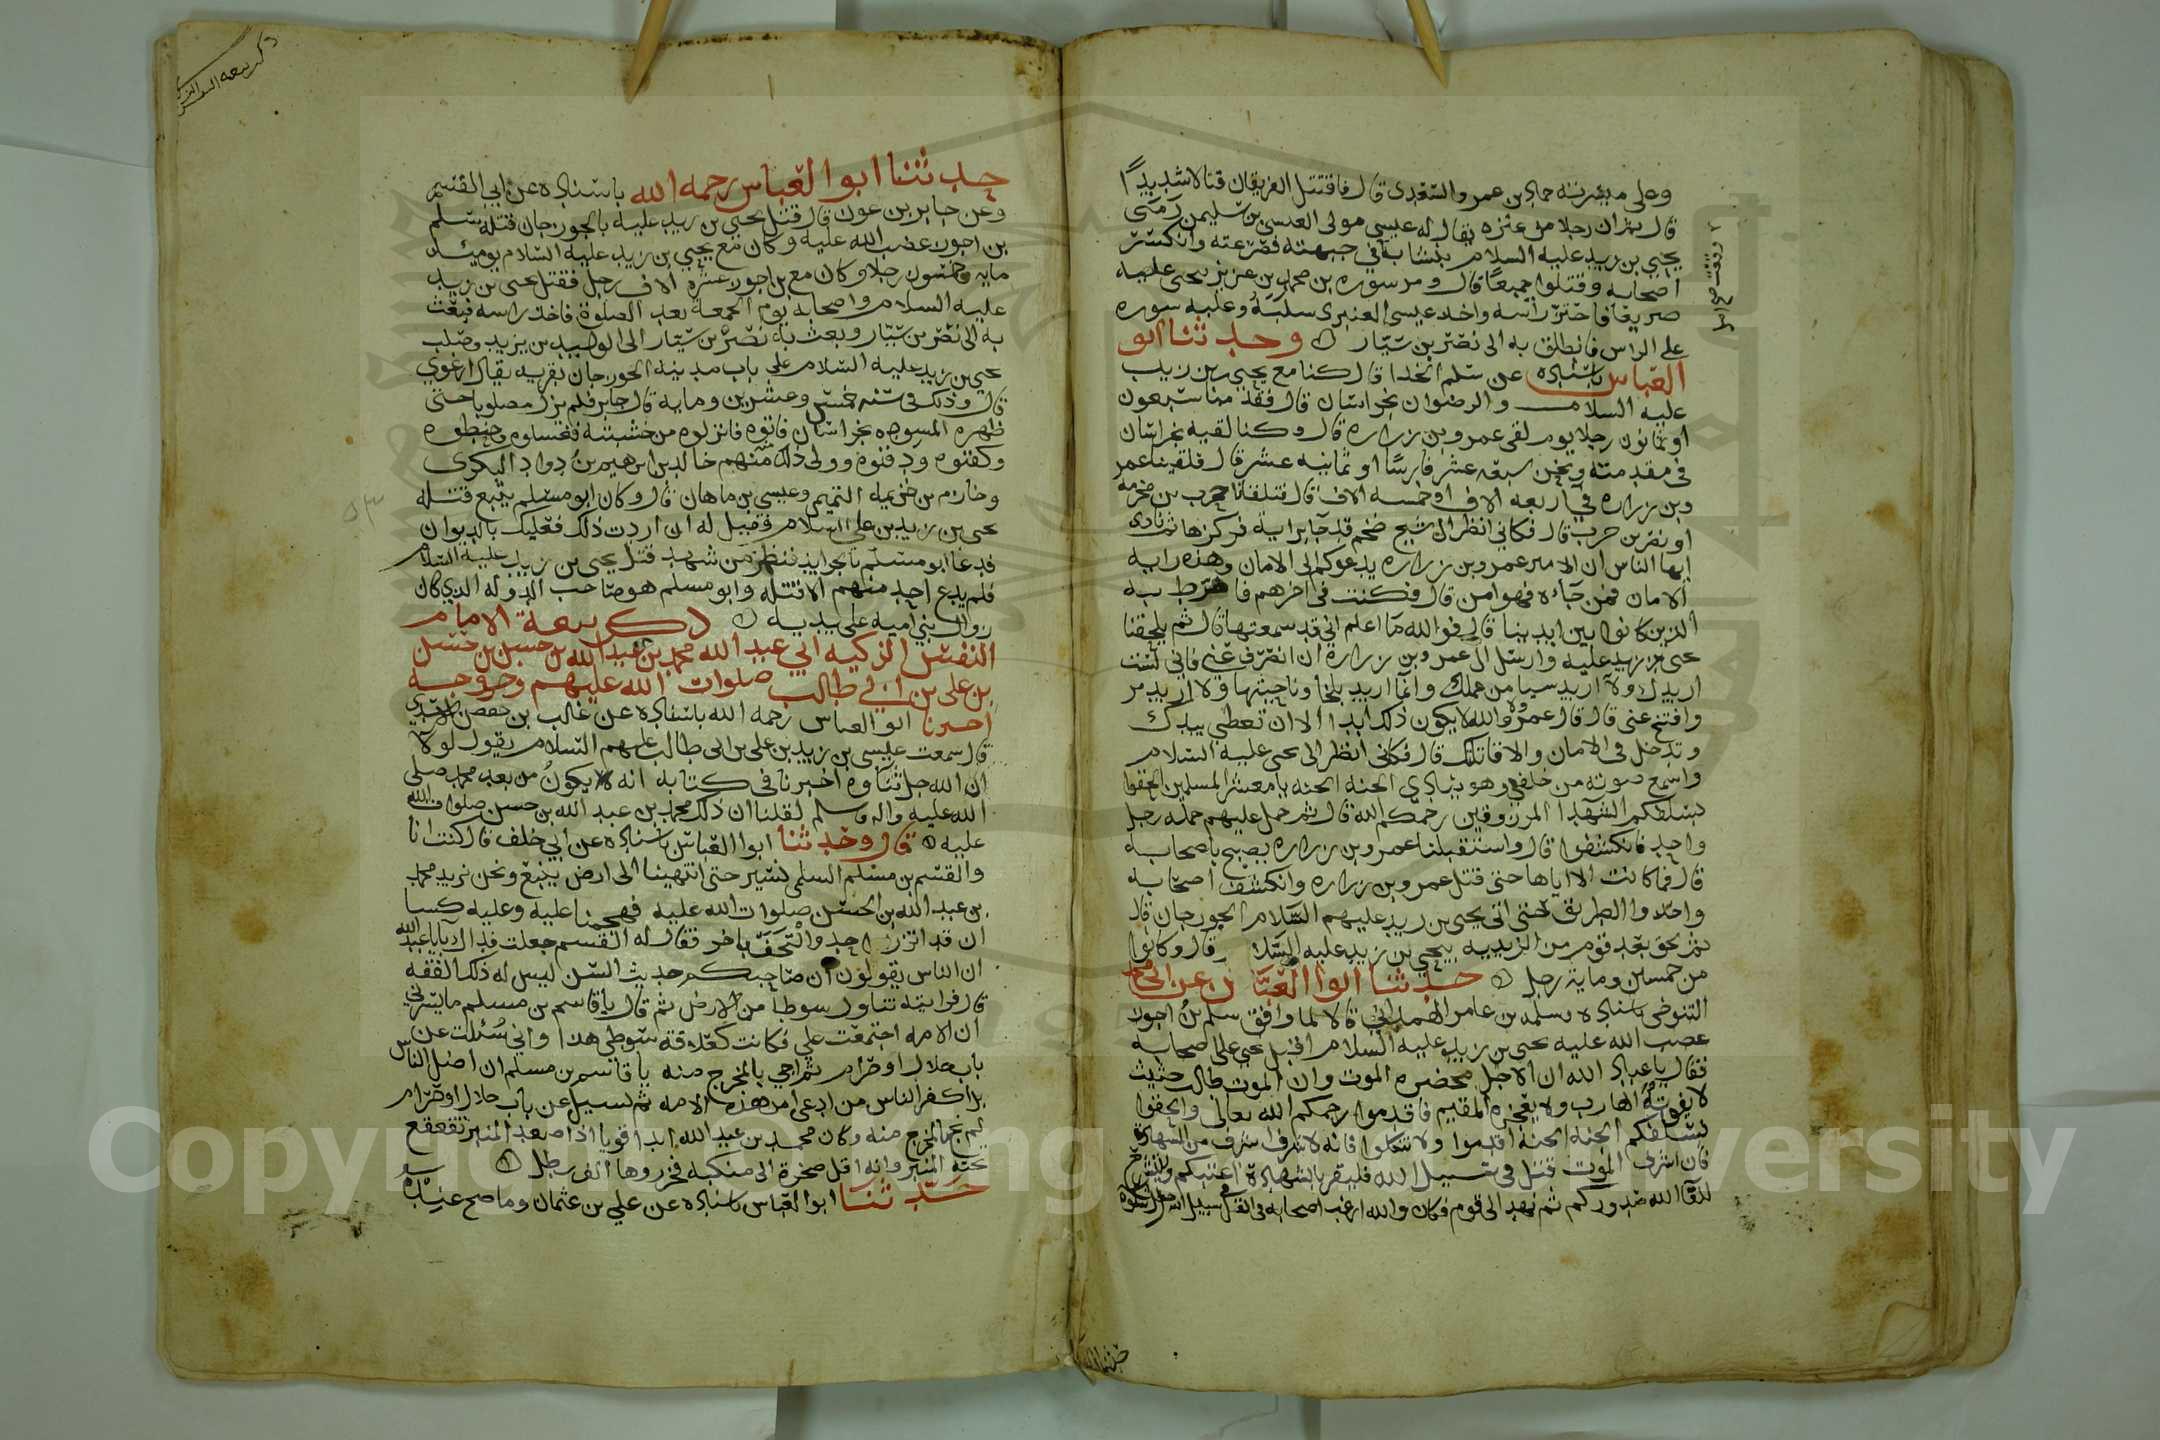 وعلى ميسرته حماد بن عمرو السغدى قال فاقتتل الفريقان قتالا شديدًا
قال ثم ان رجلا من عنزه يقال له عيسى مولى العنسى بن سليمن رمى
يحيى بن زيد عليه السلام بنشابة في جبهته فصرعته وانكسر
اصحابه وقتلوا جميعًا قال ومر سوره بن محمد بن عزيز بيحيى عليه
صريعًا فاحتز رأسه واخذ عيسى العنبرى سلبه وعليه سوره
على الراس فانطلق به الى نصر بن سيار وحدثنا ابو
العباس باسناده عن سلم الحذا قال كنا مع يحيى بن زيد
عليه السلام والرضوان بخراسان قال ففقد منا سبعون
او ثمانون رجلا يوم لقى عمرو بن زراره قال وكنا لقيه بخراسان
في مقدمته ونحن سبعه عشر فارسًا او ثمانيه عشر قال فلقينا عمر
وبن زراره في اربعه الاف او خمسه الاف قال فتلقانا حرب بن مخرمه
او نصر بن حرب قال فكاني انظر الى شيخ ضخم قد جا براية فركزها ثم نادى
ايها الناس ان الامير عمرو بن زراره يدعوكم الى الامان وهذه رايه
الامان فمن جاه فهو امن قال فكنت في اخرهم فا به
الذين كانوا بين ايدينا قال فوالله ما اعلم اني قد سمعتها قال ثم يلحقنا
يحيى بن زيد عليه وارسل الى عمرو بن زراره ان انصرف عني فاني لست
اريدك ولا اريد سيا من عملك وانما اريد بلخا وناحيتها ولا اريد مر
وافتح عنى قال قال عمرو لا والله لا يكون ذلك ابدا الا ان تعطي بيدك
وتدخل فى الامان والا قاتلتك قال فكانى انظر الى يحيى عليه السلام
واسمع صوته من خلفي وهو ينادى الجنه الجنه يا معشر المسلمين الحقوا
بسلفكم الشهدا المرزوقين رحمكم الله قال ثم حمل عليهم حمله رجل
واحد فانكشفوا قال واستقبلنا عمرو بن زراره يصيح باصحابه
قال فما كانت الا اياها حتى قتل عمرو بن زراره وانكشف اصحابه
واخلوا الطريق حتى اتى يحيى بن زيد عليهم السلام الجوزجان قال
ثم لحق بعد قوم من الزيديه بيحيى بن زيد عليه السلام قال وكانوا
من خمسين وماية رجل حدثنا ابوا العباس عن ابي
التنوخى باسناده بسلمه بن عامر الهمداني قالا لما وافق سلم بن احوز
غضب الله عليه يحيى بن زيد عليه السلام اقبل يحيى على اصحابه
فقال يا عباد الله ان الاجل محضره الموت وان الموت طالب حثيث
لا يفوته الهارب ولا يعجزه المقيم فاقدموا رحمكم الله تعالى والحقوا
بسلفكم الجنه الجنه اقدموا ولا تنكلوا فانه لا شرف اشرف من الشهادة
فان اشرف الموت قتل في سبيل الله فليقر بالشهادة اعينكم ولينشرح
للقا الله صدوركم ثم نهد الى قوم فكان والله ارغب اصحابه فى القتل سبيل الله
حدثنا ابوا العباس رحمه الله باسناده عن ابي القسم
وعن جابر بن عون قال قتل يحيى بن زيد عليه بالجوزجان قتله سلم
بن احوز غضب الله عليه وكان مع يحيى بن زيد عليه السلام يوميذ
مايه وخمسون رجلا وكان مع بن احوز عشره الاف رجل فقتل يحيى بن زيد
عليه السلام واصحابه يوم الجمعة بعد الصلوة فاخذ راسه فبعث
به الى نصر بن سيار وبعث به نصر بن سيار الى الوليد بن يزيد وصلب
يحيى بن زيد عليه السلام على باب مدينه الجوزجان بقريه يقال ارغوي
قال وذلك فى سنه خمس وعشرين ومايه قال جابر فلم يزل مصلوبا حتى
ظهره المسوده بخراسان فاتوه فانزلوه من خشبته فغسلوه وحنطوه
وكفنوه ودفنوه وولى ذلك منهم خالد بن ابرهيم بن دواد البكرى
وخازم بن خزيمه التميمى وعيسى بن ماهان قال وكان ابو مسلم يتبع قتله
يحيى بن زيد بن على السلام فقيل له ان اردت ذلك فعليك بالديوان
فدعا ابو مسلم بالجرايد فنظر من شهد قتل يحيى بن زيد عليه السلام
فلم يدع احد منهم الا قتله وابو مسلم هو صاحب الدوله الذى كان
زوال بني اميه على يديه ذكر بيعة الامام
النفس الزكيه ابي عبد الله محمد بن عبد الله بن حسن بن حسن
بن على بن ابي طالب صلوات الله عليهم وخروجه
اخبرنا ابو العباس رحمه الله باسناده عن غالب بن حفص الاسدي
قال سمعت عيسى بن زيد بن على بن ابى طالب عليهم السلام يقول لولا
ان الله جل ثناوه اخبرنا فى كتابه انه لا يكون من بعد محمد صلى
الله عليه واله وسلم لقلنا ان ذلك محمد بن عبد الله بن حسن صلوات الله
عليه قال وحدثنا ابوا العباس باسناده عن ابي خلف قال كنت انا
والقسم بن مسلم السلمى نسير حتى انتهينا الى ارض ينبع ونحن نريد محمد
بن عبد الله بن الحسن صلوات الله عليه فهجمنا عليه وعليه كسا
ان قد اتزر احد والتحف باخر فقال له القسم جعلت فداك يابا عبد الله
ان الناس يقولون ان صاحبكم حديث السن ليس له ذلك الفقه
قال فرايته تناول سوطا من الارض ثم قال يا قاسم بن مسلم ما يسرني
ان الامه اجتمعت علي فكانت كعلاقة سوطى هذا واني سئلت عن
باب حلال او حرام ثم اجي بالمخرج منه يا قاسم بن مسلم ان اضل الناس
بل اكفر الناس من ادعى امر هذه الامه ثم يسيل عن باب حلال او حرام
لم يجي المخرج منه وكان محمد بن عبد الله ابدا قويا اذا صعد المنبر تقعقع
تحته المنبر وانه اقل صخرة الى منكبه فحزروها الف رطل
حدثنا ابوا العباس باسناده عن علي بن عثمان وما صح عند
ذكر بيعه النفس
Copyright © King Saud University